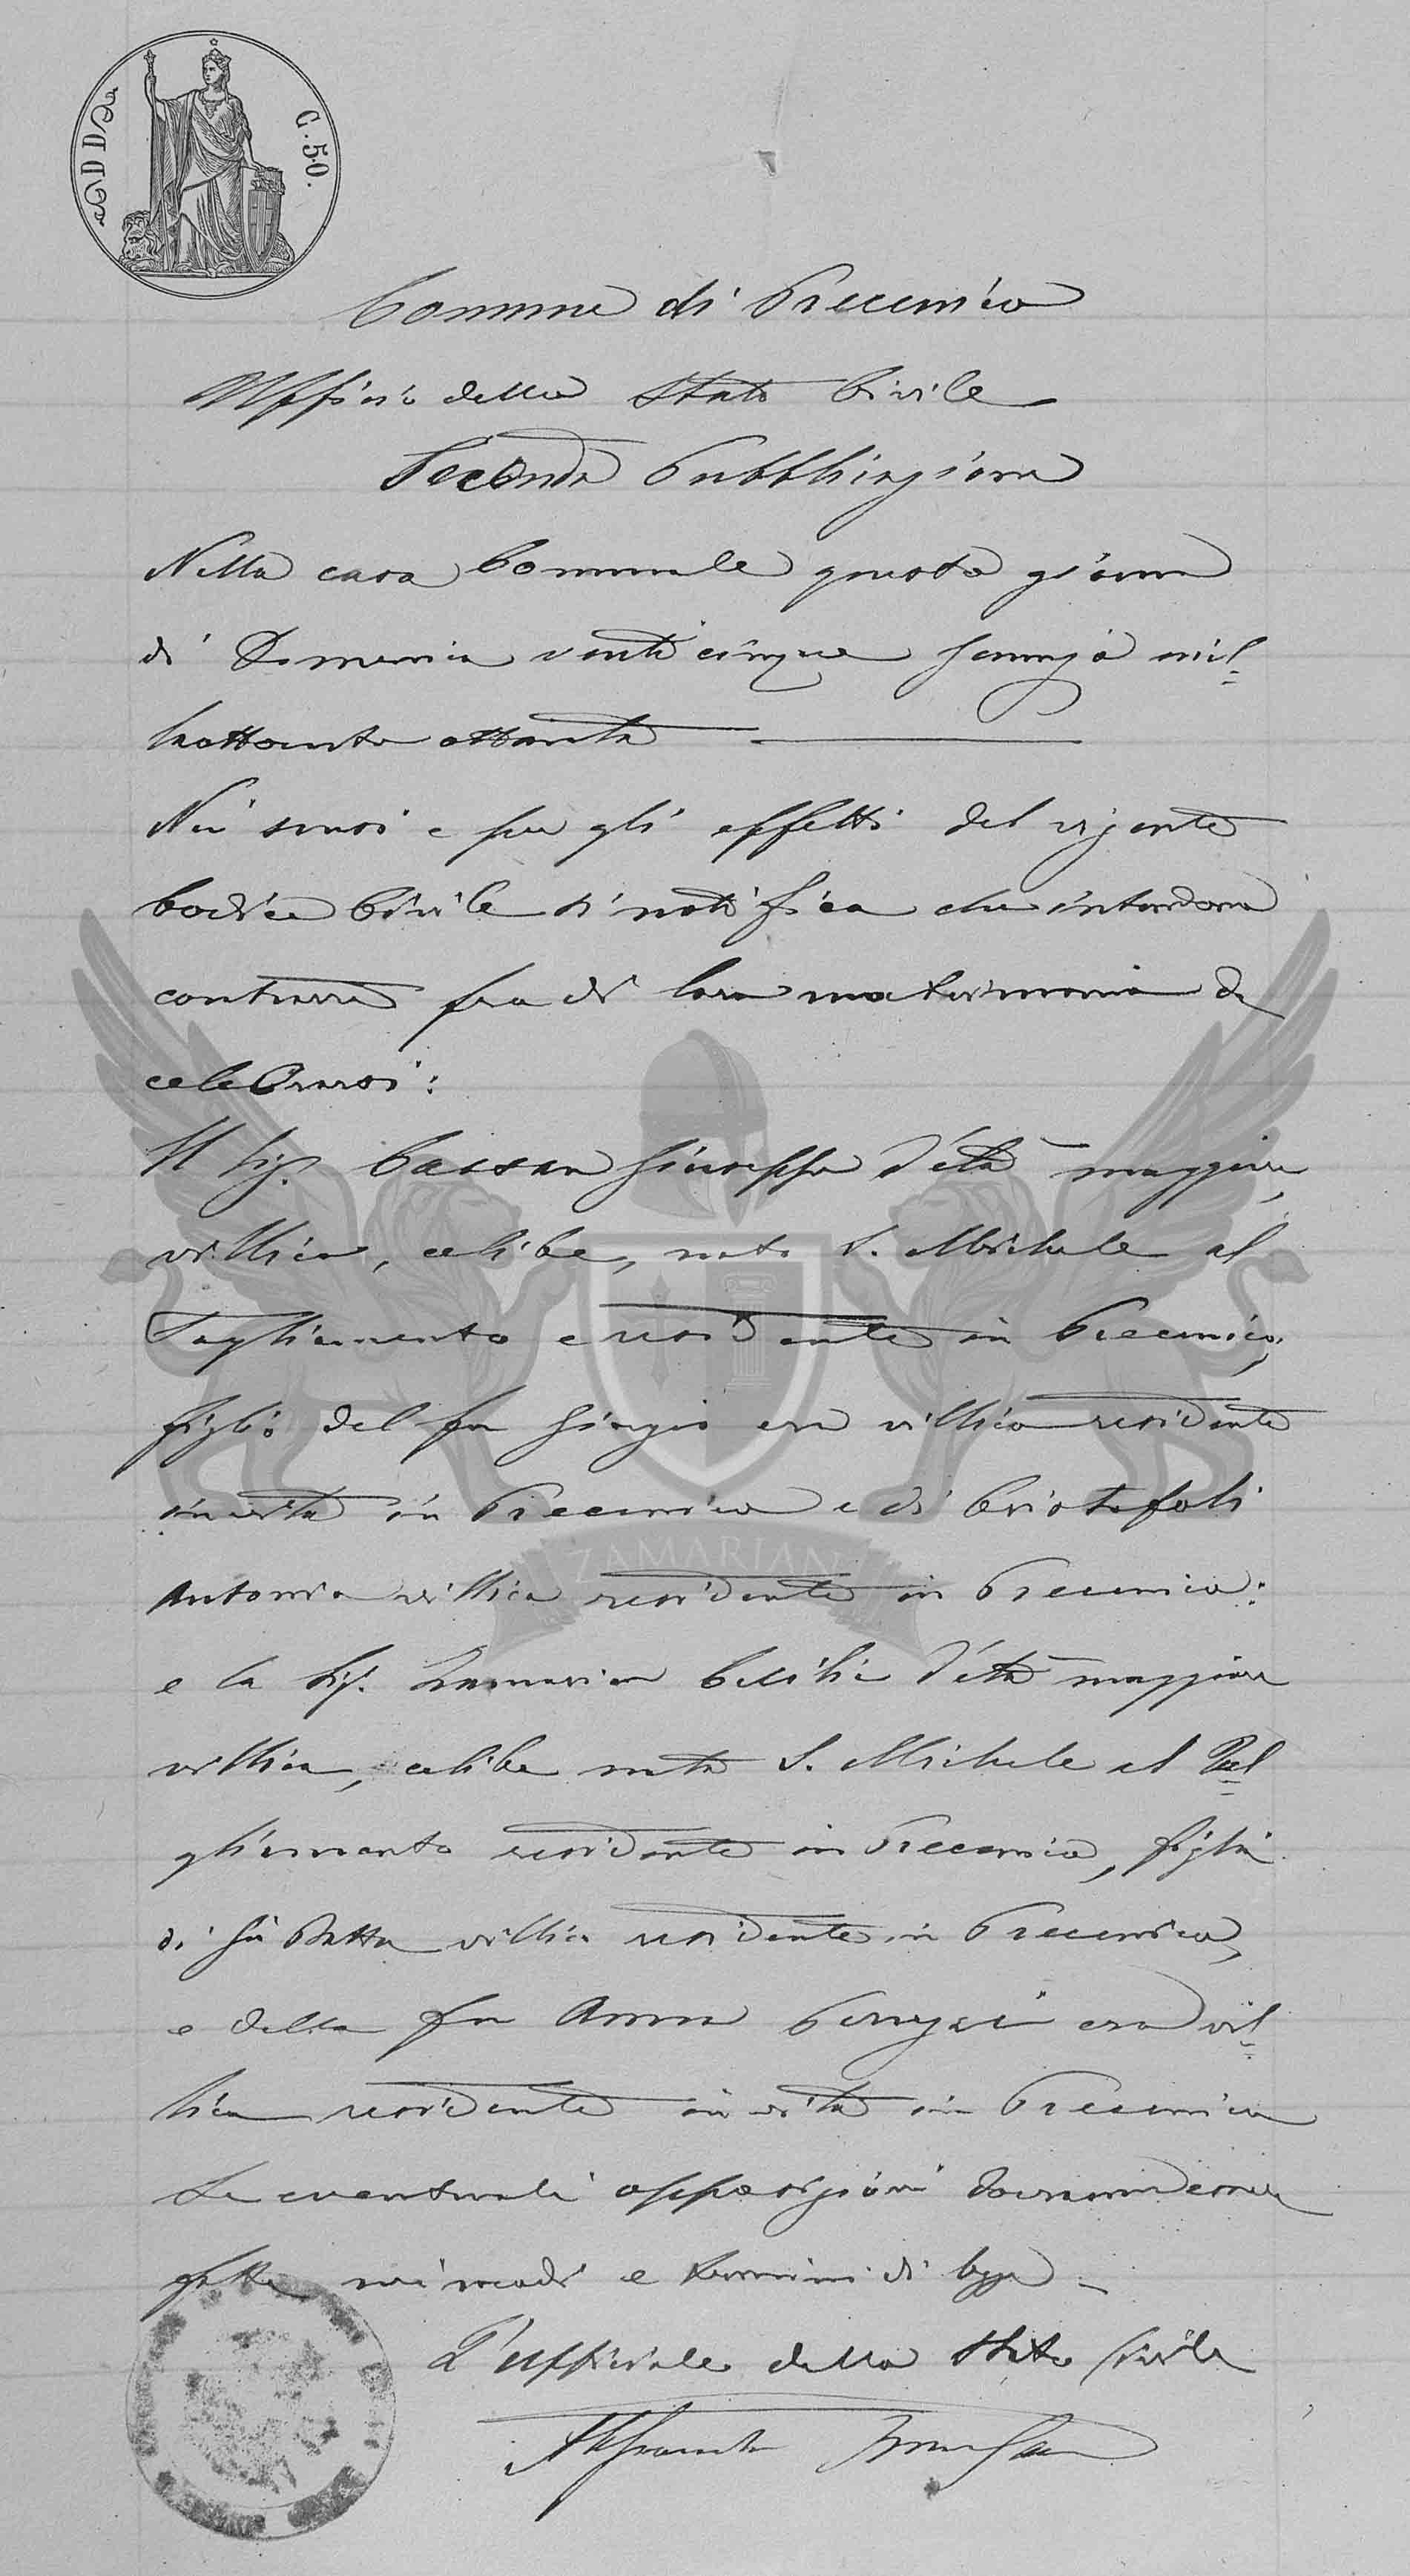 C. 50.
Comune di Precenico
Uffizio dello Stato Civile
Seconda Pubblicazione
Nella casa Comunale questo giorno
di Domenica venticinque Gennajo mil=
leottocento ottanta
Nei sensi e per gli effetti del vigente
Codice Civile si notifica che intendono
contrarre fra di loro matrimonio da
celebrarsi:
Il Sig. Cassan Giuseppe d'età maggiore,
villico, celibe, nato S. Michele al
Tagliamento e residente in Precenico,
figlio del fu Giorgio era villico residente
in vita in Precenico e di Cristofoli
Antonia villica residente in Precenico:
ZAMARIAN
e la Sig. Zamarian Cecilia d'età maggiore
villica, celibe nata S. Michele al Tal=
gliamento residente in Precenico, figlia
di Gio Batta villico residente in Precenico,
e della fu Anna era vil=
lica residente in vita in Precenico
Le eventuali opposizioni dovranno essere
fatte nei modi e termini di legge
L'uffiziale dello Stato Civile